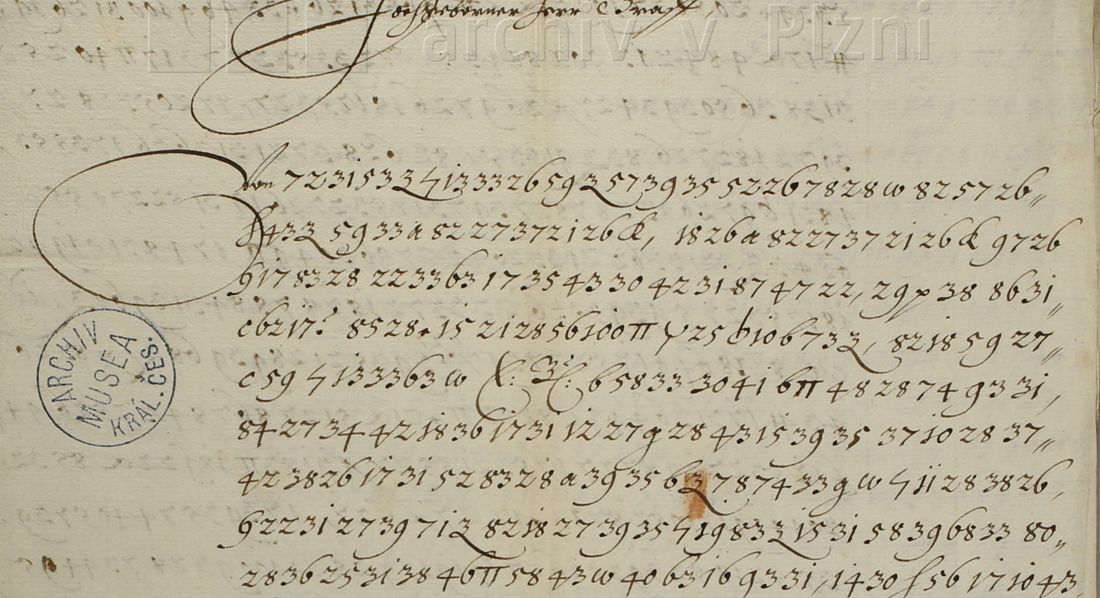 Hochgeborner Herr Graff
archiv v Plzni
Von 7231533ʒ413332659ʒ573935522678 28w 825726„
433ʒ5933a82273721 26æ, 1826a8227372126æ 9726
917832822336317354330423187 4722, 29p38 8631„
c6217: 8528. 15212856100π ψ25 h106733ʒ, 8218 5927„
c59 4133363w 65833 30416π482874 9331,
84273442183617311227g28 43153935 371028 37„
423826173152 8328a3935 6ʒ787433gw 411283826,
62231273971ʒ 8218273935419833ʒ1531 58396833 80„
2836253138 46π5843w 40631 69331, 1430 5617 1043,
ARCHIV
MUSEA
KRÁL. ČES.